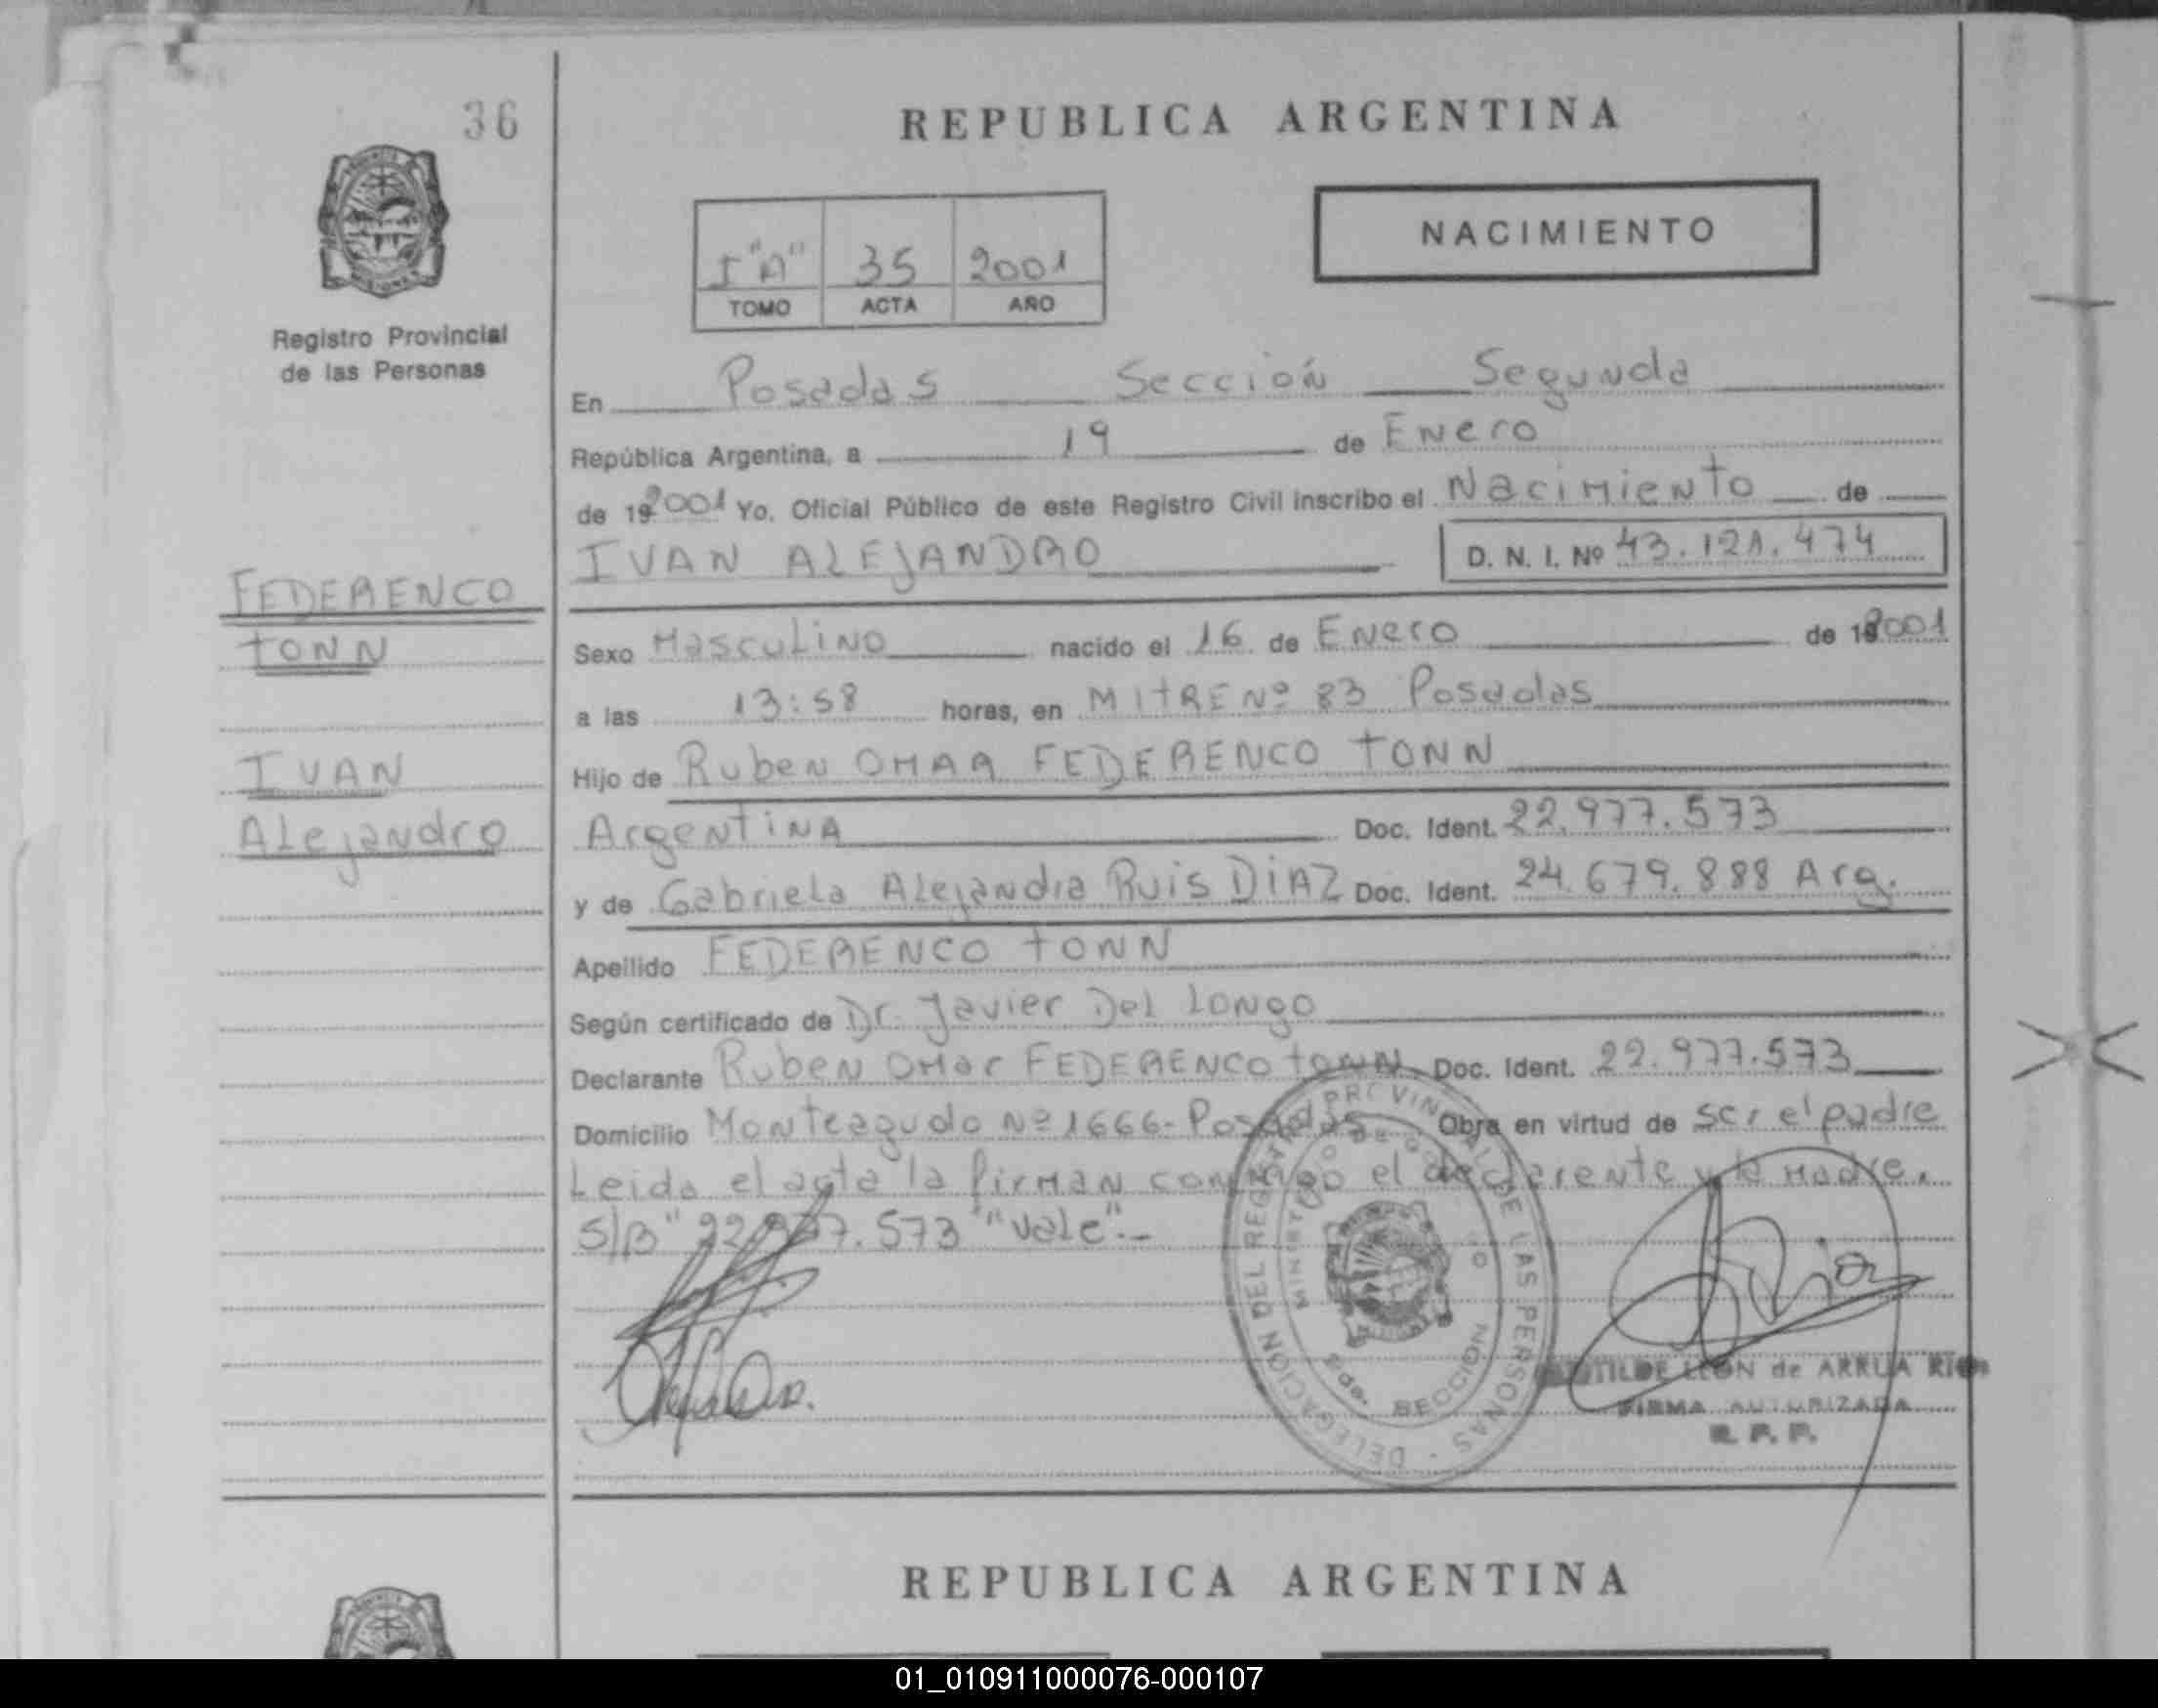 36
REPUBLICA ARGENTINA
NACIMIENTO
I "A" 35 2001
TOMO ACTA AÑO
Registro Provincial
de las Personas
En Posadas Sección Segunda
República Argentina, a 19 de Enero
de 192001 Yo, Oficial Público de este Registro Civil inscribo el Nacimiento de
IVAN ALEJANDRO D. N. I. Nº 43.121.474
FEDERENCO
TONN
IVAN
Alejandro
Sexo Masculino nacido el 16 de Enero de 192001
a las 13:58 horas, en MITRE Nº 83 Posadas
Hijo de Ruben OMAR FEDERENCO TONN
Argentina Doc. Ident. 22.977.573
y de Gabriela Alejandra Ruis DiAZ Doc. Ident. 24.679.888 Arg.
Apellido FEDERENCO TONN
Según certificado de Dr. Javier Del Longo
Declarante Ruben Omar FEDERENCO TONN Doc. Ident. 22.977.573
Domicilio Monteagudo Nº 1666-Posadas Obra en virtud de ser el padre
Leida el acta la firman conmigo el declarente y la Madre.
S/B "22.977.573" "vale".-
DELEGACION DEL REGISTRO PROVINCIAL DE LAS PERSONAS
MINISTERIO DE GOBIERNO
2da. SECCION
LEON de ARRUA
FIRMA AUTORIZADA
R. P. P.
REPUBLICA ARGENTINA
01_010911000076-000107